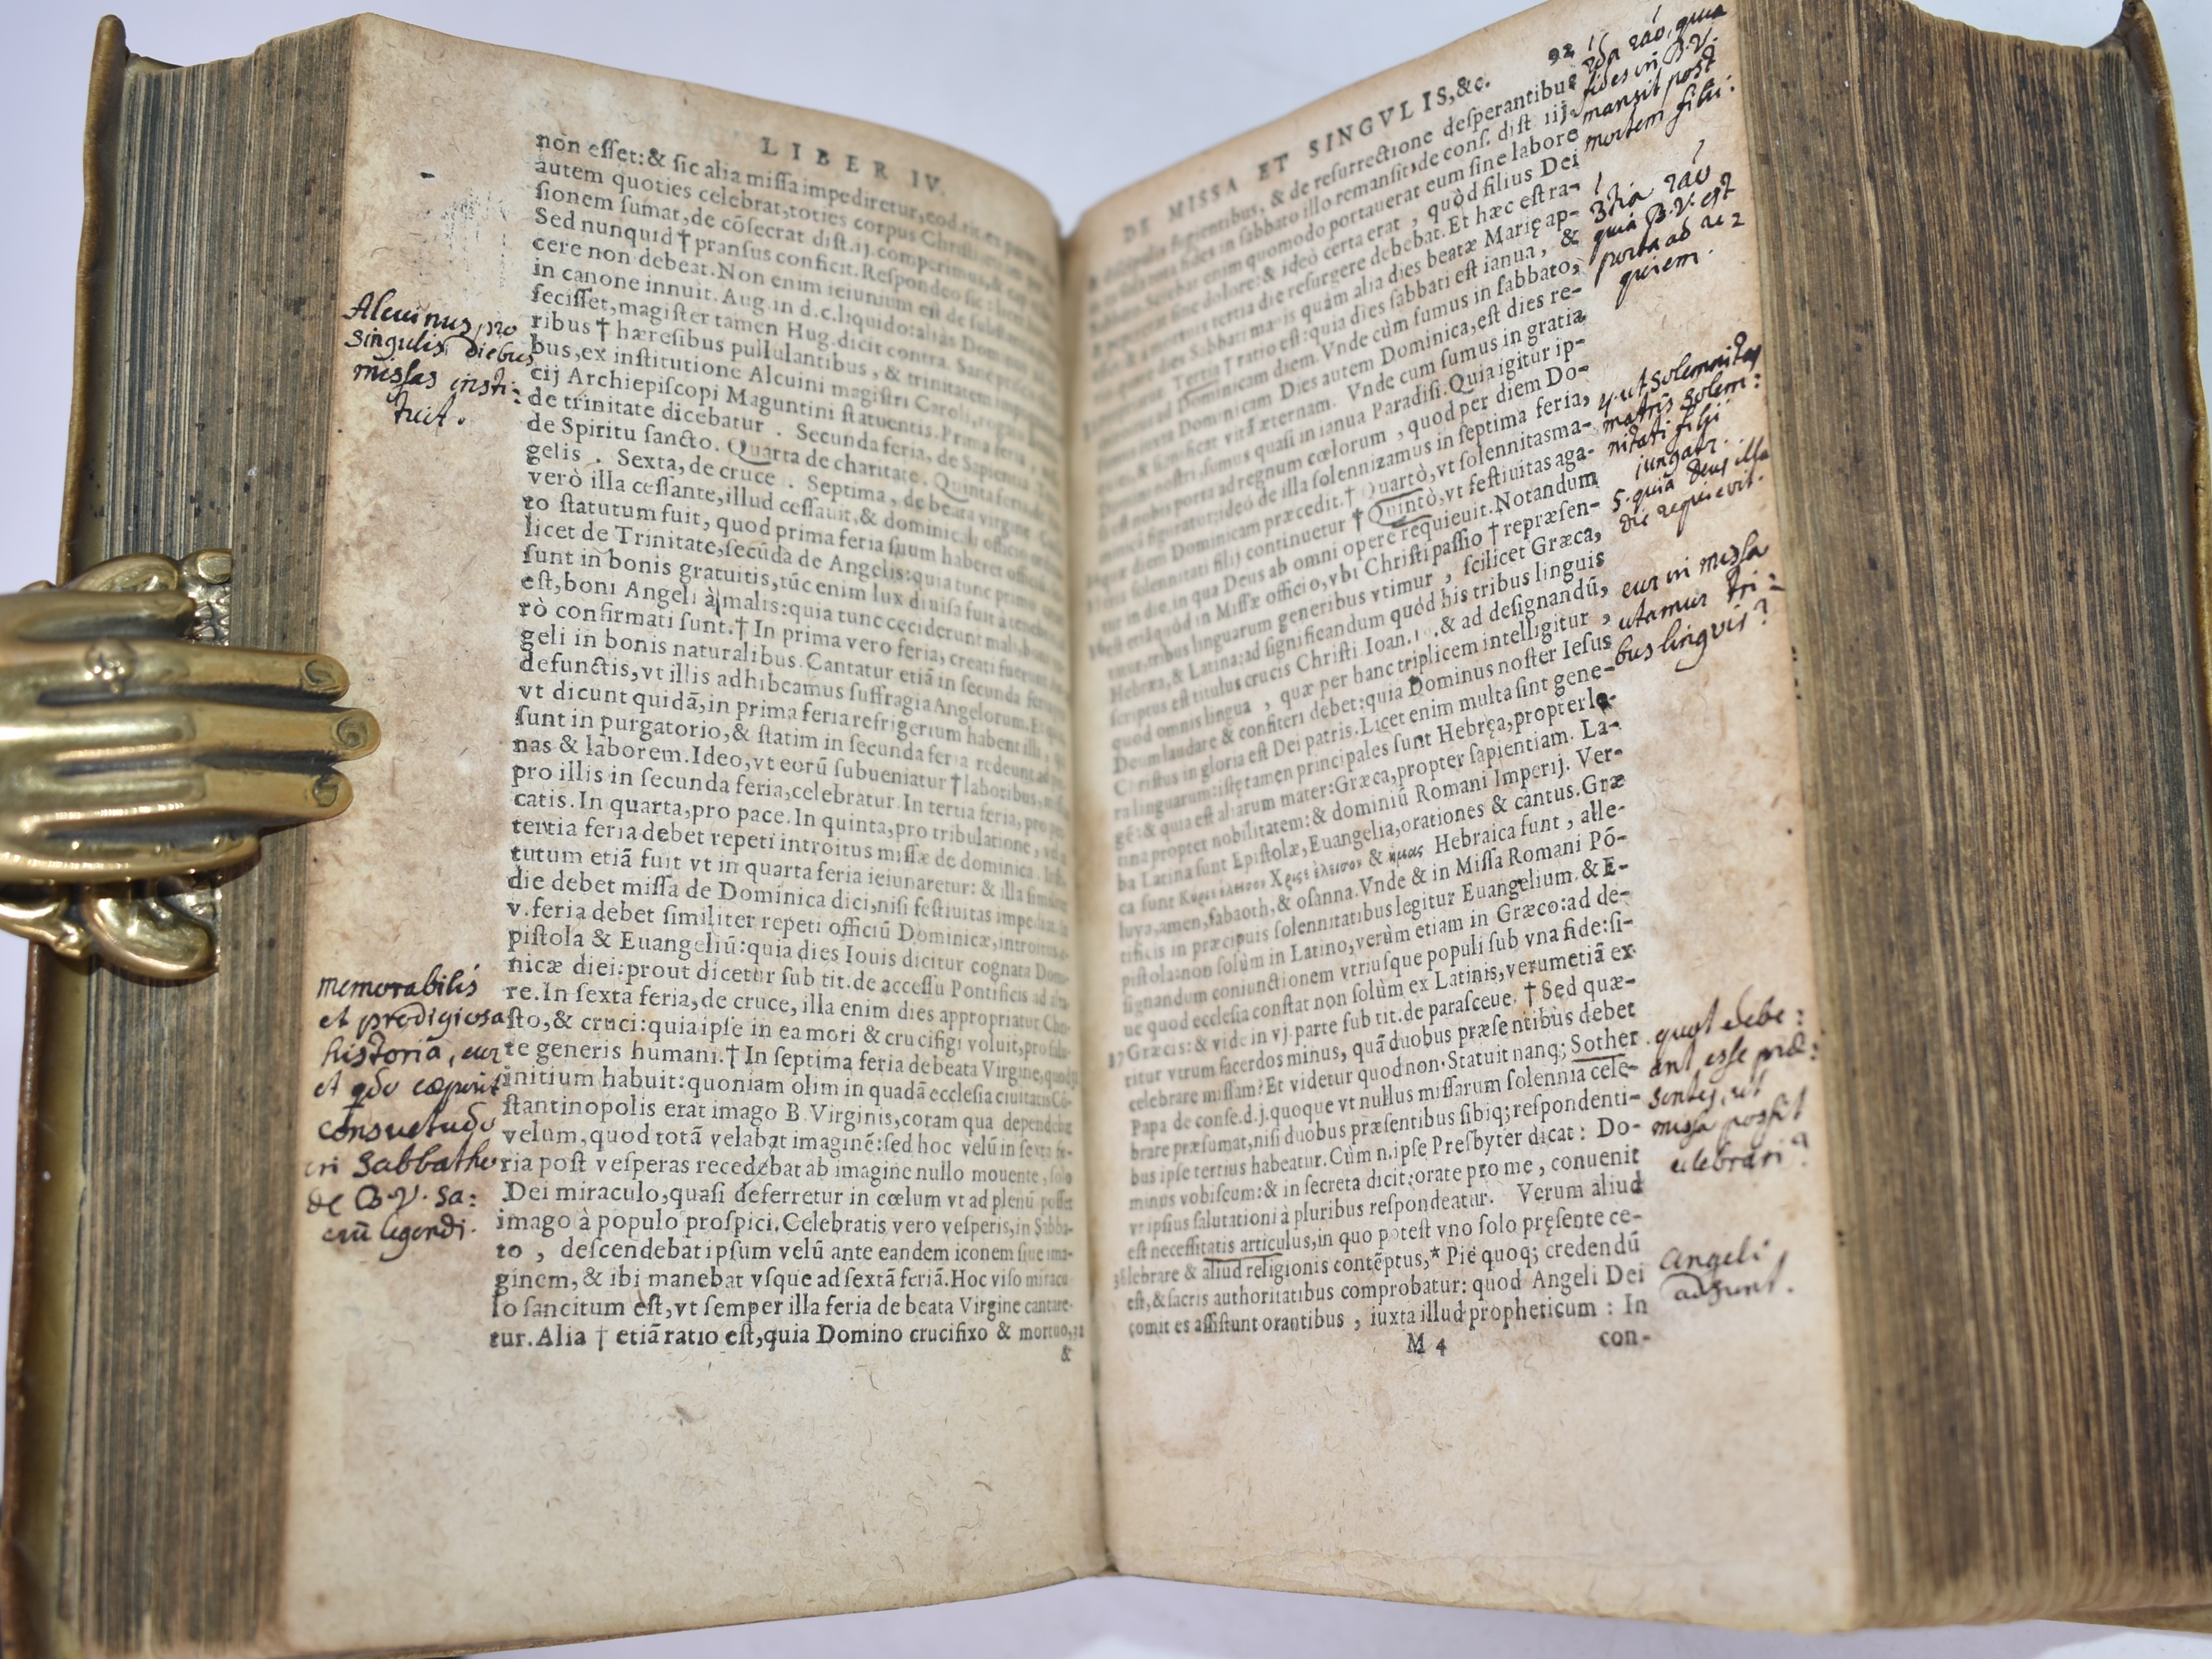 LIBER IV.
non eſſet:& ſic alia miſſa impediretur, eod. tit. ex parte
autem quoties celebrat, toties corpus Chriſti
ſionem ſumat, de cōſecrat diſt.ij. comperimus, &
Sed nunquid † pranſus conficit. Reſpondeo ſic licet
cere non debeat. Non enim ieiunium eſt de ſubſtantia
in canone innuit. Aug. in d. c. liquido: aliàs Dominus
feciſſet, magiſter tamen Hug. dicit contra. Sanè
ribus † hæreſibus pullulantibus, & trinitatem
bus, ex inſtitutione Alcuini magiſtri Caroli, rogatu
cij Archiepiſcopi Maguntini ſtatuentis. Prima feria
de trinitate dicebatur. Secunda feria, de Sapientia
de Spiritu ſancto. Quarta de charitate. Quinta feria, de
gelis. Sexta, de cruce. Septima, de beata virgine
verò illa ceſſante, illud ceſſauit, & dominicali officio
to ſtatutum fuit, quod prima feria ſuum haberet officium
licet de Trinitate, ſecūda de Angelis: quia tunc primo
ſunt in bonis gratuitis, tūc enim lux diuiſa fuit à tenebris
eſt, boni Angeli à malis: quia tunc ceciderunt mali, boni
rò confirmati ſunt. † In prima vero feria, creati fuerunt
geli in bonis naturalibus. Cantatur etiā in ſecunda feria
defunctis, vt illis adhibeamus ſuffragia Angelorum. Et
vt dicunt quidā, in prima feria refrigerium habent illi, qui
ſunt in purgatorio, & ſtatim in ſecunda feria redeunt ad pœ-
nas & laborem. Ideo, vt eorū ſubueniatur † laboribus, miſſa
pro illis in ſecunda feria, celebratur. In tertia feria, pro pec-
catis. In quarta, pro pace. In quinta, pro tribulatione, vel
tertia feria debet repeti introitus miſſæ de dominica. Inſti-
tutum etiā fuit vt in quarta feria ieiunaretur: & illa ſimiliter
die debet miſſa de Dominica dici, niſi feſtiuitas impediat. In
v. feria debet ſimiliter repeti officiū Dominicæ, introitus, e-
piſtola & Euangeliū: quia dies Iouis dicitur cognata Domi-
nicæ diei: prout dicetur ſub tit. de acceſſu Pontificis ad alta-
re. In ſexta feria, de cruce, illa enim dies appropriatur Chri-
ſto, & cruci: quia ipſe in ea mori & crucifigi voluit, pro ſalu-
te generis humani. † In ſeptima feria de beata Virgine, quod
initium habuit: quoniam olim in quadā eccleſia ciuitatis Cō-
ſtantinopolis erat imago B. Virginis, coram qua dependebat
velum, quod totā velabat imaginē: ſed hoc velū in ſexta fe-
ria poſt veſperas recedebat ab imagine nullo mouente, ſolo
Dei miraculo, quaſi deferretur in cœlum vt ad plenū poſſet
imago à populo proſpici. Celebratis vero veſperis, in Sabba-
to, deſcendebat ipſum velū ante eandem iconem ſiue ima-
ginem, & ibi manebat vſque ad ſextā feriā. Hoc viſo miracu
lo ſancitum eſt, vt ſemper illa feria de beata Virgine cantare-
tur. Alia † etiā ratio eſt, quia Domino crucifixo & mortuo,
&
Alcuinus, pro
singulis diebus
missas insti:
tuit.
memorabilis
et prodigiosa
historia, cur
et qdo cœperit
consuetudo
in Sabbatho
de B.V. sa:
crū legendi.
DE MISSA ET SINGVLIS, &c. 92
diſcipulis fugientibus, & de reſurrectione deſperantibus
in ſola tota fides in ſabbato illo remanſit, de conſ. diſt iij.
Sciebat enim quomodo portauerat eum ſine labore
& ſine dolore: & ideò certa erat, quòd filius Dei
à mortuis tertia die reſurgere debebat. Et hæc eſt ra-
dies Sabbati magis quàm alia dies beatæ Marię ap-
Tertia † ratio eſt: quia dies ſabbati eſt ianua, &
ad Dominicam diem. Vnde cùm ſumus in ſabbato,
Dominicam Dies autem Dominica, eſt dies re-
& ſignificat vitā æternam. Vnde cum ſumus in gratia
Domini noſtri, ſumus quaſi in ianua Paradiſi. Quia igitur ip-
eſt nobis porta ad regnum cœlorum, quod per diem Do-
minicā figuratur: ideò de illa ſolennizamus in ſeptima feria,
quæ diem Dominicam præcedit. † Quartò, vt ſolennitas ma-
ſolennitati filij continuetur † Quintò, vt feſtiuitas aga-
tur in die, in qua Deus ab omni opere requieuit. Notandum
eſt etiā quòd in Miſſæ officio, vbi Chriſti paſſio † repræſen-
tatur, tribus linguarum generibus vtimur, ſcilicet Græca,
Hebræa, & Latina: ad ſignificandum quòd his tribus linguis
ſcriptus eſt titulus crucis Chriſti Ioan. & ad deſignandū,
quod omnis lingua, quæ per hanc triplicem intelligitur,
Deum laudare & confiteri debet: quia Dominus noſter Ieſus
Chriſtus in gloria eſt Dei patris. Licet enim multa ſint gene-
ra linguarum: iſtę tamen principales ſunt Hebręa, propter le-
gē: & quia eſt aliarum mater: Græca, propter ſapientiam. La-
tina propter nobilitatem: & dominiū Romani Imperij. Ver-
ba Latina ſunt Epiſtolæ, Euangelia, orationes & cantus. Græ
ca ſunt Κύριε ἐλεισον Χριςε ἐλεισον & ημας Hebraica ſunt, alle-
luya, amen, ſabaoth, & oſanna. Vnde & in Miſſa Romani Pō-
tificis in præcipuis ſolennitatibus legitur Euangelium. & E-
piſtola: non ſolùm in Latino, verùm etiam in Græco: ad de-
ſignandum coniunctionem vtriuſque populi ſub vna fide: ſi-
ue quod eccleſia conſtat non ſolùm ex Latinis, verumetiā ex
37 Græcis: & vide in vj. parte ſub tit. de paraſceue. † Sed quæ-
ritur vtrum ſacerdos minus, quā duobus præſentibus debet
celebrare miſſam? Et videtur quod non. Statuit nanq; Sother
Papa de conſe. d. j. quoque vt nullus miſſarum ſolennia cele-
brare præſumat, niſi duobus præſentibus ſibiq; reſpondenti-
bus ipſe tertius habeatur. Cùm n. ipſe Preſbyter dicat: Do-
minus vobiſcum: & in ſecreta dicit: orate pro me, conuenit
vt ipſius ſalutationi à pluribus reſpondeatur. Verum aliud
eſt neceſſitatis articulus, in quo poteſt vno ſolo pręſente ce-
38 lebrare & aliud religionis contēptus, * Piè quoq; credendū
eſt, & ſacris authoritatibus comprobatur: quod Angeli Dei
comites aſſiſtunt orantibus, iuxta illud propheticum: In
M 4 con-
2da rāo, quia
fides in B.V.
mansit post
mortem filii.
3tia rāo
quia B.V. est
porta ad re
quiem.
4. ut solemnitas
matris solem:
nitati filii
jungatr.
5. quia Deus illa
die requievit.
cur in missa
utamur tri:
bus linguis?
quot debe:
ant esse præ:
sentes, ut
missa possit
celebrari?
Angeli
adsunt.